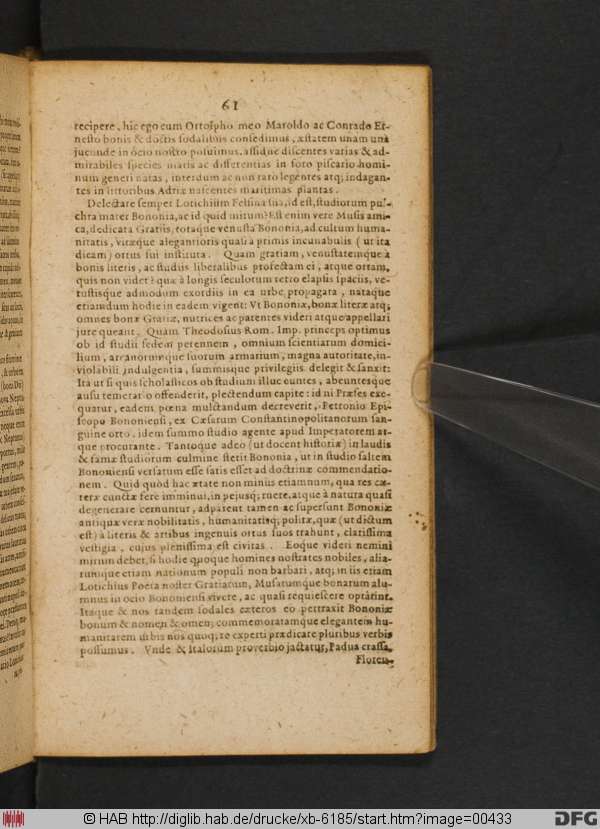 61
recipere, hic ego cum Ortolpho meo Maroldo ac Conrado Er-
nesto bonis & doctis sodalibus consedimus, æstatem unam unà
jucunde in ócio nostro posuimus, assidue discentes varias & ad-
mirabiles species maris ac differentias in foro piscario homi-
num generi natas, interdum ac non raro legentes atq; indagan-
tes in littoribus Adriæ nascentes maritimas plantas.
Delectare semper Lotichium Felsina sua, id est, studiorum pul-
chra mater Bononia, ac id quid mirum? Est enim vere Musis ami-
ca, dedicata Gratiis, totaque venusta Bononia, ad cultum huma-
nitatis, vitæque elegantioris quasi a primis incunabulis (ut ita
dicam) ortus sui instituta. Quam gratiam, venustatemque à
bonis literis, ac studiis liberalibus profectam ei, atque ortam,
quis non videt? quæ à longis seculorum retro elapsis spaciis, ve-
tustisque admodum exordiis in ea urbe propagata, nataque
etiamdum hodie in eadem vigent: Vt Bononiæ, bonæ literæ atq;
omnes bonæ Gratiæ, nutrices ac parentes videri atque appellari
jure queant. Quam Theodosius Rom. Imp. princeps optimus
ob id studii sedem perennem, omnium scientiarum domici-
lium, arcanorumque suorum armarium, magna autoritate, in-
violabili indulgentia, summisque privilegiis delegit & sanxit:
Ita ut si quis scholasticos ob studium illuc euntes, abeuntesque
ausu temerario offenderit, plectendum capite: id ni Præses exe-
quatur, eadem pœna mulctandum decreverit, Petronio Epi-
scopo Bononiensi, ex Cæsarum Constantinopolitanorum san-
guine orto, idem summo studio agente apud Imperatorem at-
que procurante. Tantoque adeo (ut docent historiæ) in laudis
& famæ studiorum culmine stetit Bononia, ut in studio saltem
Bononiensi versatum esse satis esset ad doctrinæ commendatio-
nem. Quid quòd hac ætate non minus etiamnum, qua res cæ-
teræ cunctæ fere imminui, in pejusq; ruere, atque à natura quasi
degenerare cernuntur, adparent tamen ac supersunt Bononiæ
antiquæ veræ nobilitatis, humanitatisq; politæ, quæ (ut dictum
est) à literis & artibus ingenuis ortus suos trahunt, clarissima
vestigia, cujus plenissima est civitas. Eoque videri nemini
mirum debet, si hodie quoque homines nostrates nobiles, alia-
rumque etiam nationum populi non barbari, atq; in iis etiam
Lotichius Poëta noster Gratiarum, Musarumque bonarum alu-
mnus in ocio Bononiensi vivere, ac quasi requiescere optarint.
Itaque & nos tandem sodales cæteros eo pertraxit Bononiæ
bonum & nomen & omen; commemoratamque elegantem hu-
manitatem urbis nos quoq; re experti prædicare pluribus verbis
possumus. Vnde & Italorum proverbio jactatur, Padua crassa,
Floren-
© HAB http://diglib.hab.de/drucke/xb-6185/start.htm?image=00433
DFG